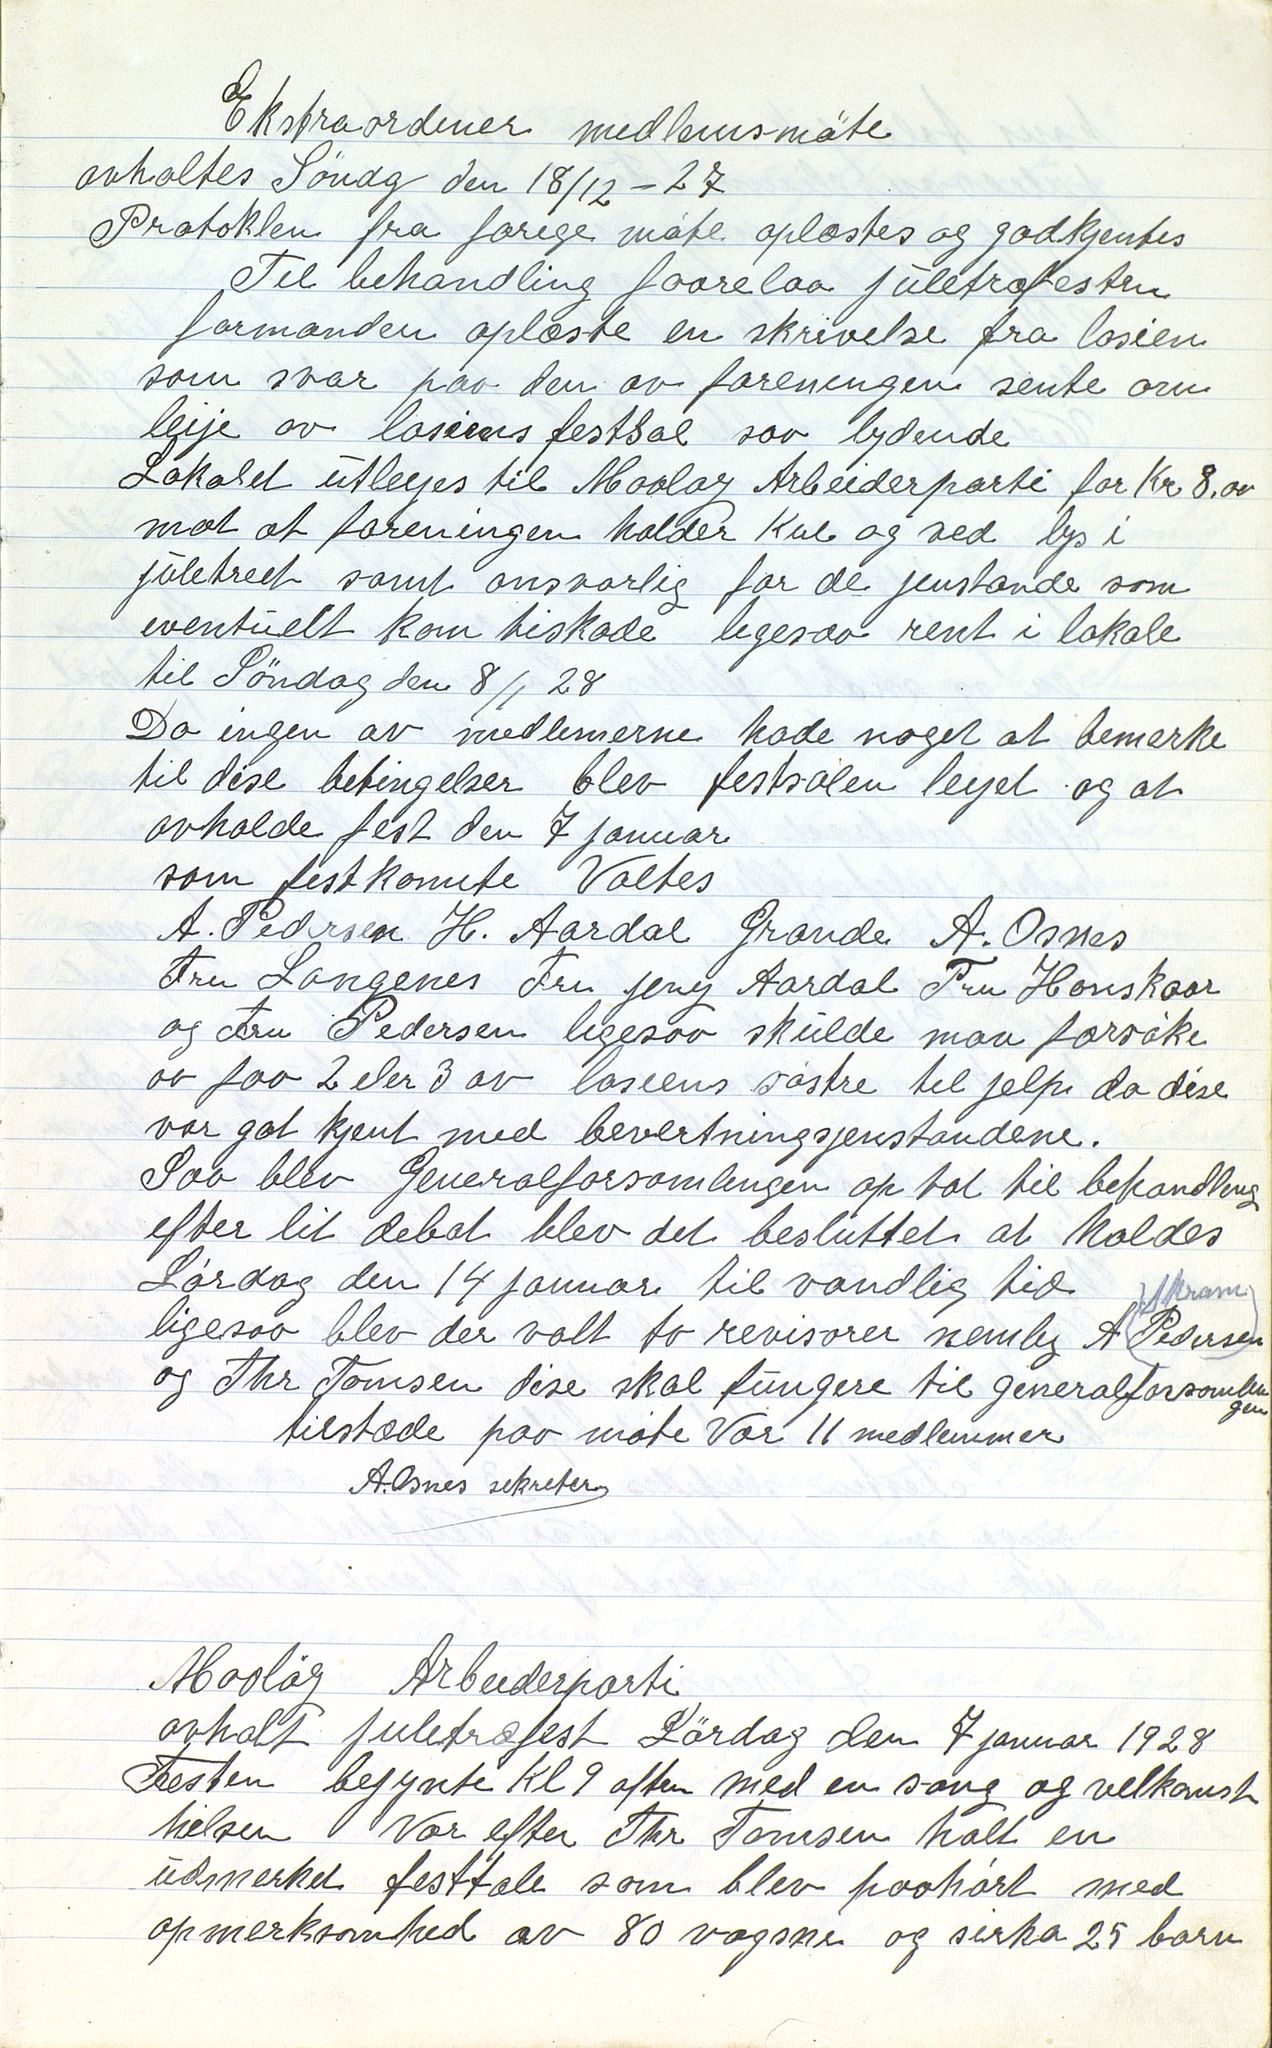 Ekstraordener medlemsmöte
avholtes Söndg den 18/12 – 27
Protoklen fra forege möte oplæstes og godkjentes
Til behandling foorelaa juletrafesten
formanden oplæste en skrivelse fra losien
som svar paa den av foreningen sente om
leije av losiens festsal saa lydende
Lokalet utleijes til Maaløy Arbeiderparti for Kr 8.00
mot at foreningen holder Kul og ved lys i
juletreet samt ansvarlig for de jenstande som
eventuelt kom tiskade ligesaa rent i lokale
til Söndag den 8/1 28
Da ingen av medlemerne hade noget at bemerke
til dise betingelser blev festsalen leijet og at
avholde fest den 7 januar
som festkomite Valtes
A. Pedersen H. Aardal Grande A. Osnes
Fru Langenes Fru Jeny Aardal Fru Honskaar
og Fru Pedersen ligesaa skulde man forsöke
av faa 2 eler 3 av losiens söstre til jelp da dise
var got kjent med bevertningsjenstandene.
Saa blev Generalforsamlingen op tat til behandling
efter lit debat blev det besluttet at holdes
Lördag den 14 januar til vandlig tid
Skram
ligesaa blev der valt to revisorer nemlig A (Pedersen)
og Thr Tomsen dise skal fungere til generalforsamlin
gen
tilstæde paa möte Var 11 medlemmer
A. Osnes sekretær
Maalöy Arbeiderparti
avholt juletræfest Lördag den 7 januar 1928
Festen begynte Kl 9 aften med en sang og velkomst
hielsen Var efter Thr Tomsen holt en
udmerket festtale som blev paahört med
opmerksomhed av 80 vogsne og sirka 25 barn